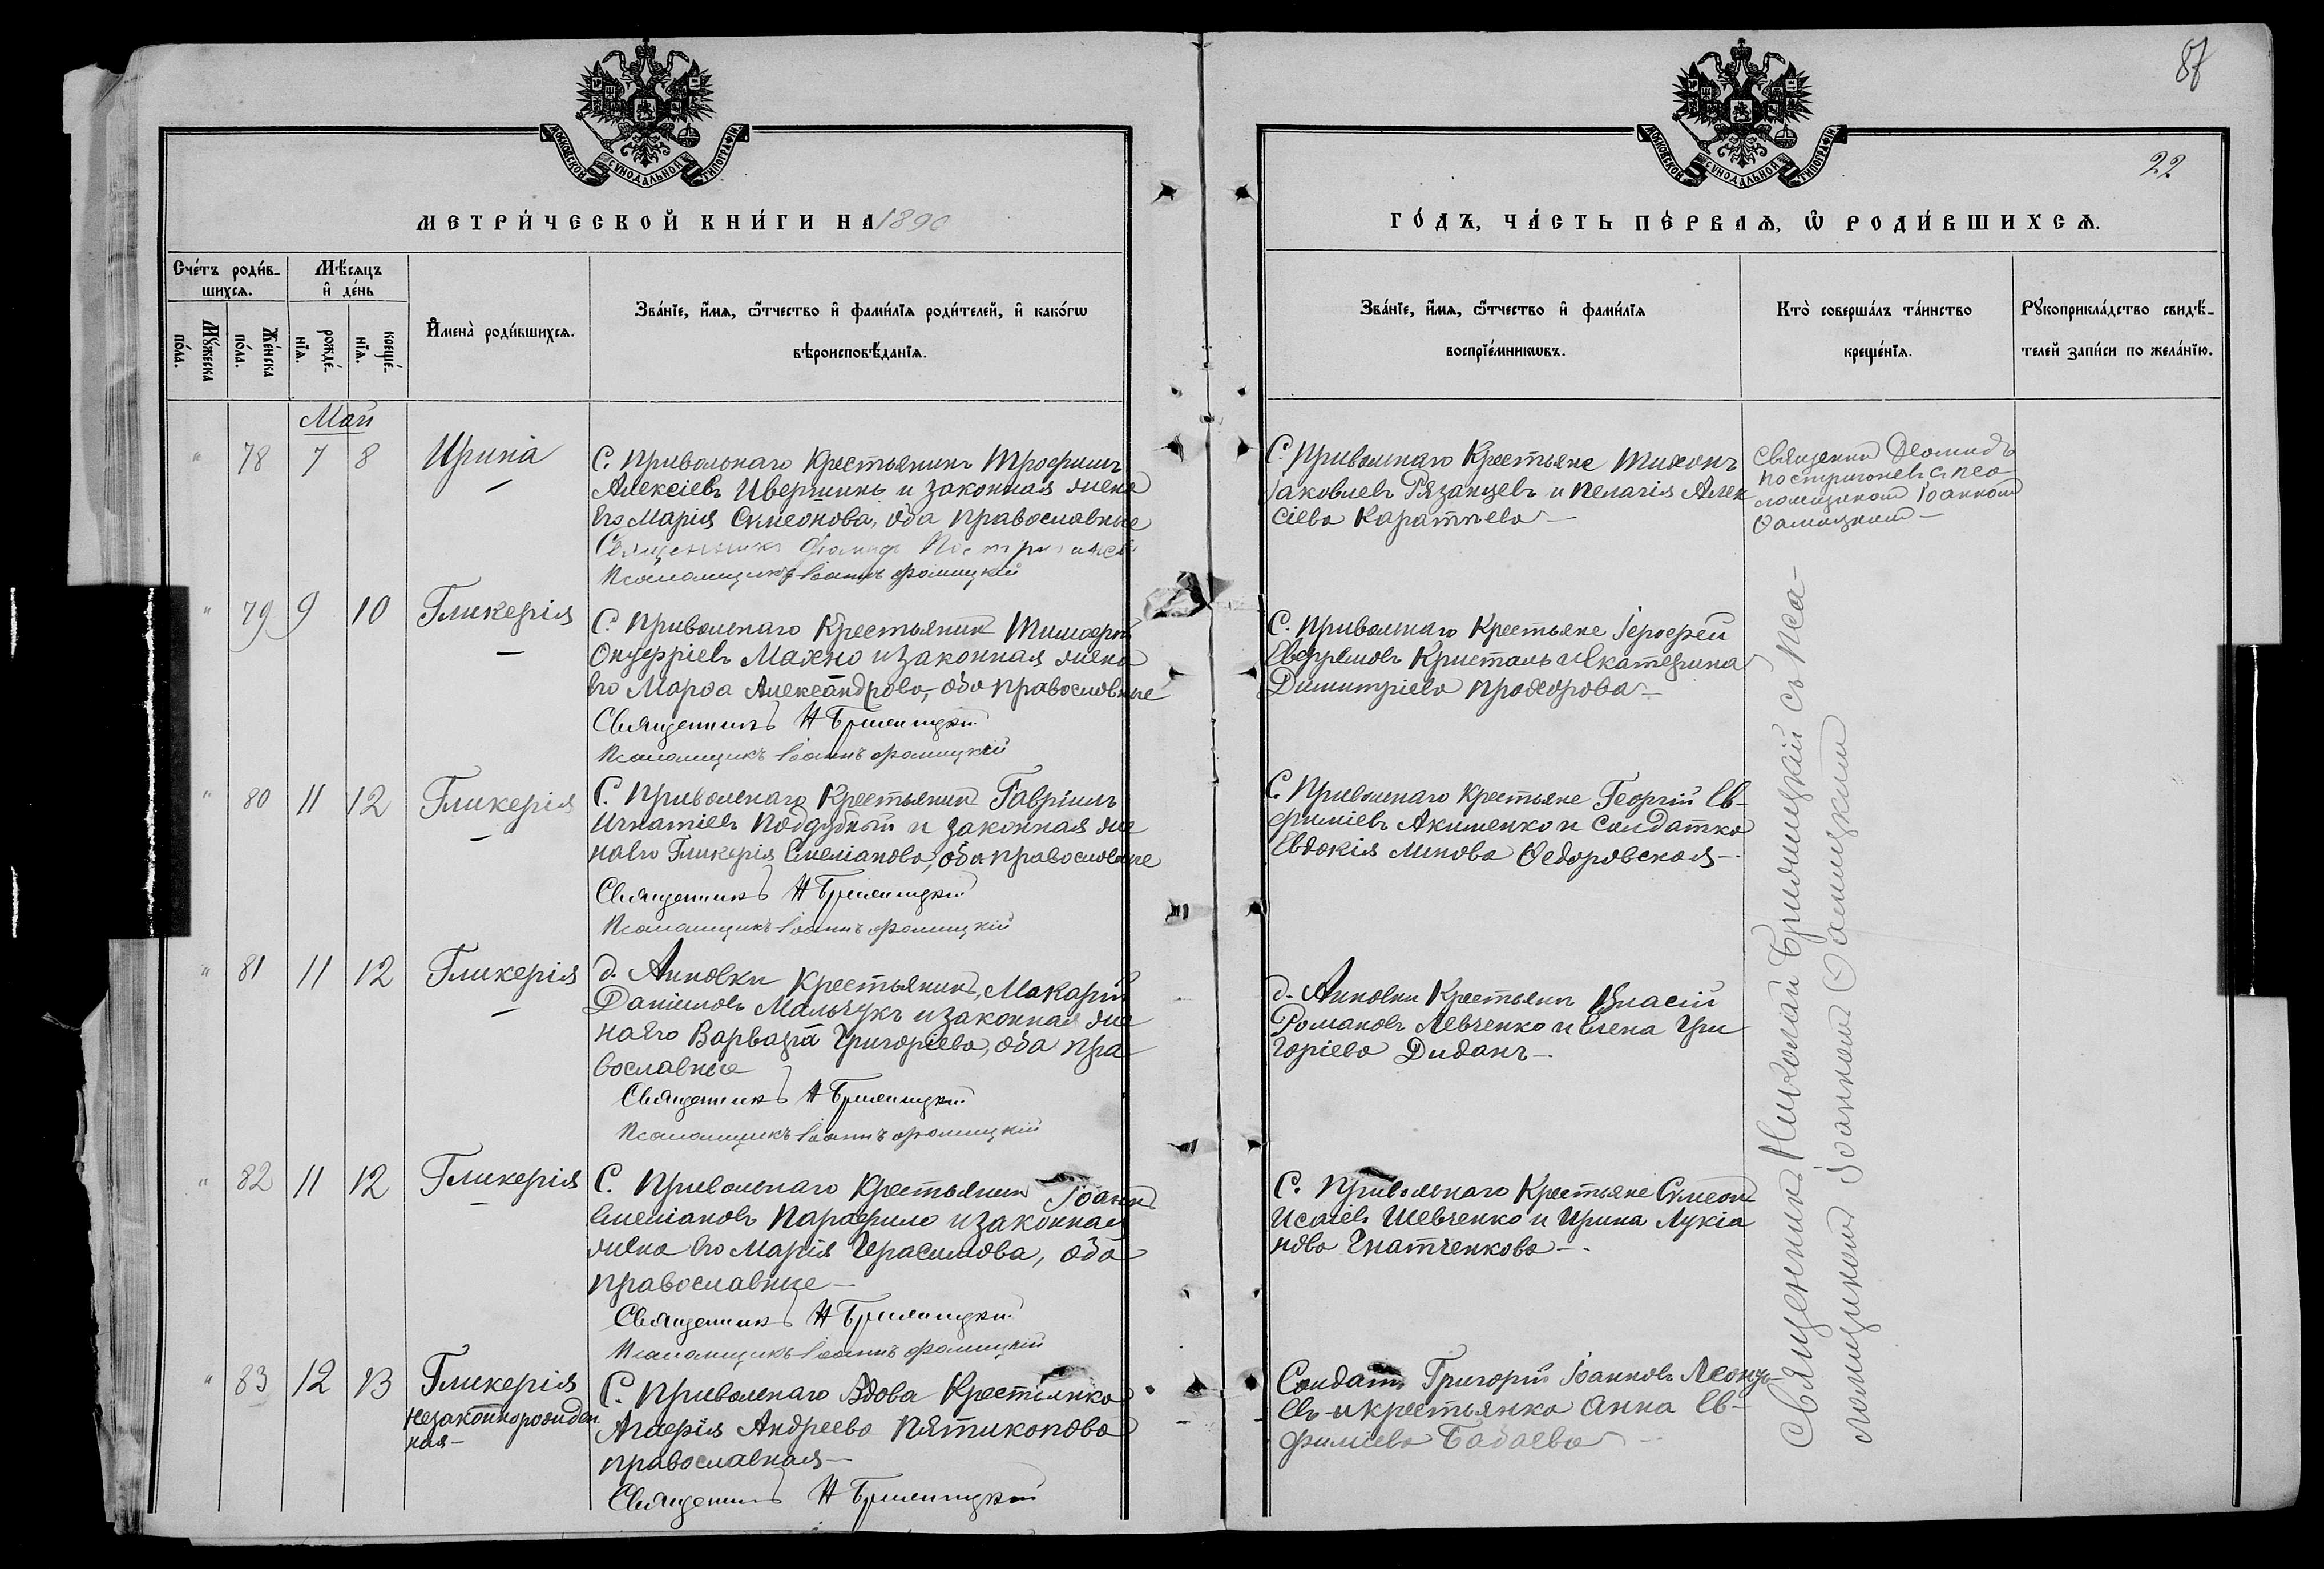 87
МОСКОВСКОЙ СѴНОДАЛЬНОЙ ТИПОГРАФІИ
МОСКОВСКОЙ СѴНОДАЛЬНОЙ ТИПОГРАФІИ
22
МЕТРИ́ЧЕСКОЙ КНИ́ГИ НА 1890
ГО́ДЪ, ЧА́СТЬ ПЕ́РВАѦ, Ѽ РОДИ́ВШИХСѦ.
Сче́тъ роди́в-
шихсѧ.
Мѣ́сѧцъ
и҆ де́нь
Мꙋ́жеска
по́ла.
Же́нска
по́ла.
рожде́-
нїѧ.
креще́-
нїѧ.
И҆мена̀ роди́вшихсѧ.
Зва́нїе, и҆́мѧ, ѻ҆́тчество и҆ фами́лїѧ роди́телей, и҆ како́гѡ
вѣроисповѣ́данїѧ.
Зва́нїе, и҆́мѧ, ѻ҆́тчество и҆ фами́лїѧ
воспрїе́мникѡвъ.
Кто̀ соверша́лъ та́инство
креще́нїѧ.
Рꙋкоприкла́дство свидѣ́-
телей за́писи по жела́нїю.
Май
" 78 7 8 Ирина
С. Привольнаго Крестьянинъ Трофимъ
Алексіевъ Ивершинь и законная жена
его Марія Симеонова, оба православные
Священникъ Диомидъ Постригачевъ
Псаломщикъ Іоаннъ Фомицкій
С. Привольнаго Крестьяне Тихонъ
Іаковлевъ Рязанцевъ и Пелагія Алек
сіева Каратпева
Священник Диомидъ
Постригачевъ с псa
ломщикомъ Іоанномъ
Ѳомицкимъ
" 79 9 10 Гликерія
С. Привольнаго Крестьянин Тимофей
Онуфріевъ Махно и законная жена
его Марѳа Александрова, оба православные
Священникъ Н Брилинцкій
Псаломщикъ Іоаннъ Фомицкій
С. Привольнаго Крестьяне Іерофей
Евфремовъ Кристаль и Екатерина
Димитріева Прохорова
" 80 11 12 Гликерія
С. Привольнаго Крестьянин Гавріилъ
Игнатіевъ Поддубный и законная же
на его Гликерія Емеліанова, оба православные
Священникъ Н Брилинцкій
Псаломщикъ Іоаннъ Фомицкій
С. Привольнаго Крестьяне Георгій Ев-
фиміевъ Акименко и Солдатка
Евдокія Минова Ѳедоровская
" 81 11 12 Гликерія
д. Анновки Крестьянинъ, Макарій
Даніиловъ Мальчукъ и законная же
на его Варвара Григоріева, оба пра
вославные
Священникъ Н Брилинцкій
Псаломщикъ Іоаннъ Фомицкій
д. Анновки Крестьянъ Власій
Романовъ Левченко и Елена Гри
горіева Диданъ
" 82 11 12 Гликерія
С. Привольнаго Крестьянинъ Іоаннъ
Емеліановъ Парафило и законная
жена его Марія Герасимова, оба
православные
Священникъ Н Брилинцкій
Псаломщикъ Іоаннъ Фомицкій
С. Привольнаго Крестьяне Симеонъ
Исаіевъ Шевченко и Ирина Лукіа
нова Гнатченкова
" 83 12 13 Гликерія
незаконнорожден
ная
С. Привольнаго Вдова Крестьянка
Агафія Андреева Пятикопова
православная
Священникъ Н Брилинцкій
Солдатъ Григорій Іоанновъ Леонтье
въ и крестьянка Анна Ев-
фиміева Бабаева
Священникъ Николай Брилинцкій съ пса-
ломщикомъ Іоанномъ Ѳомицкимъ